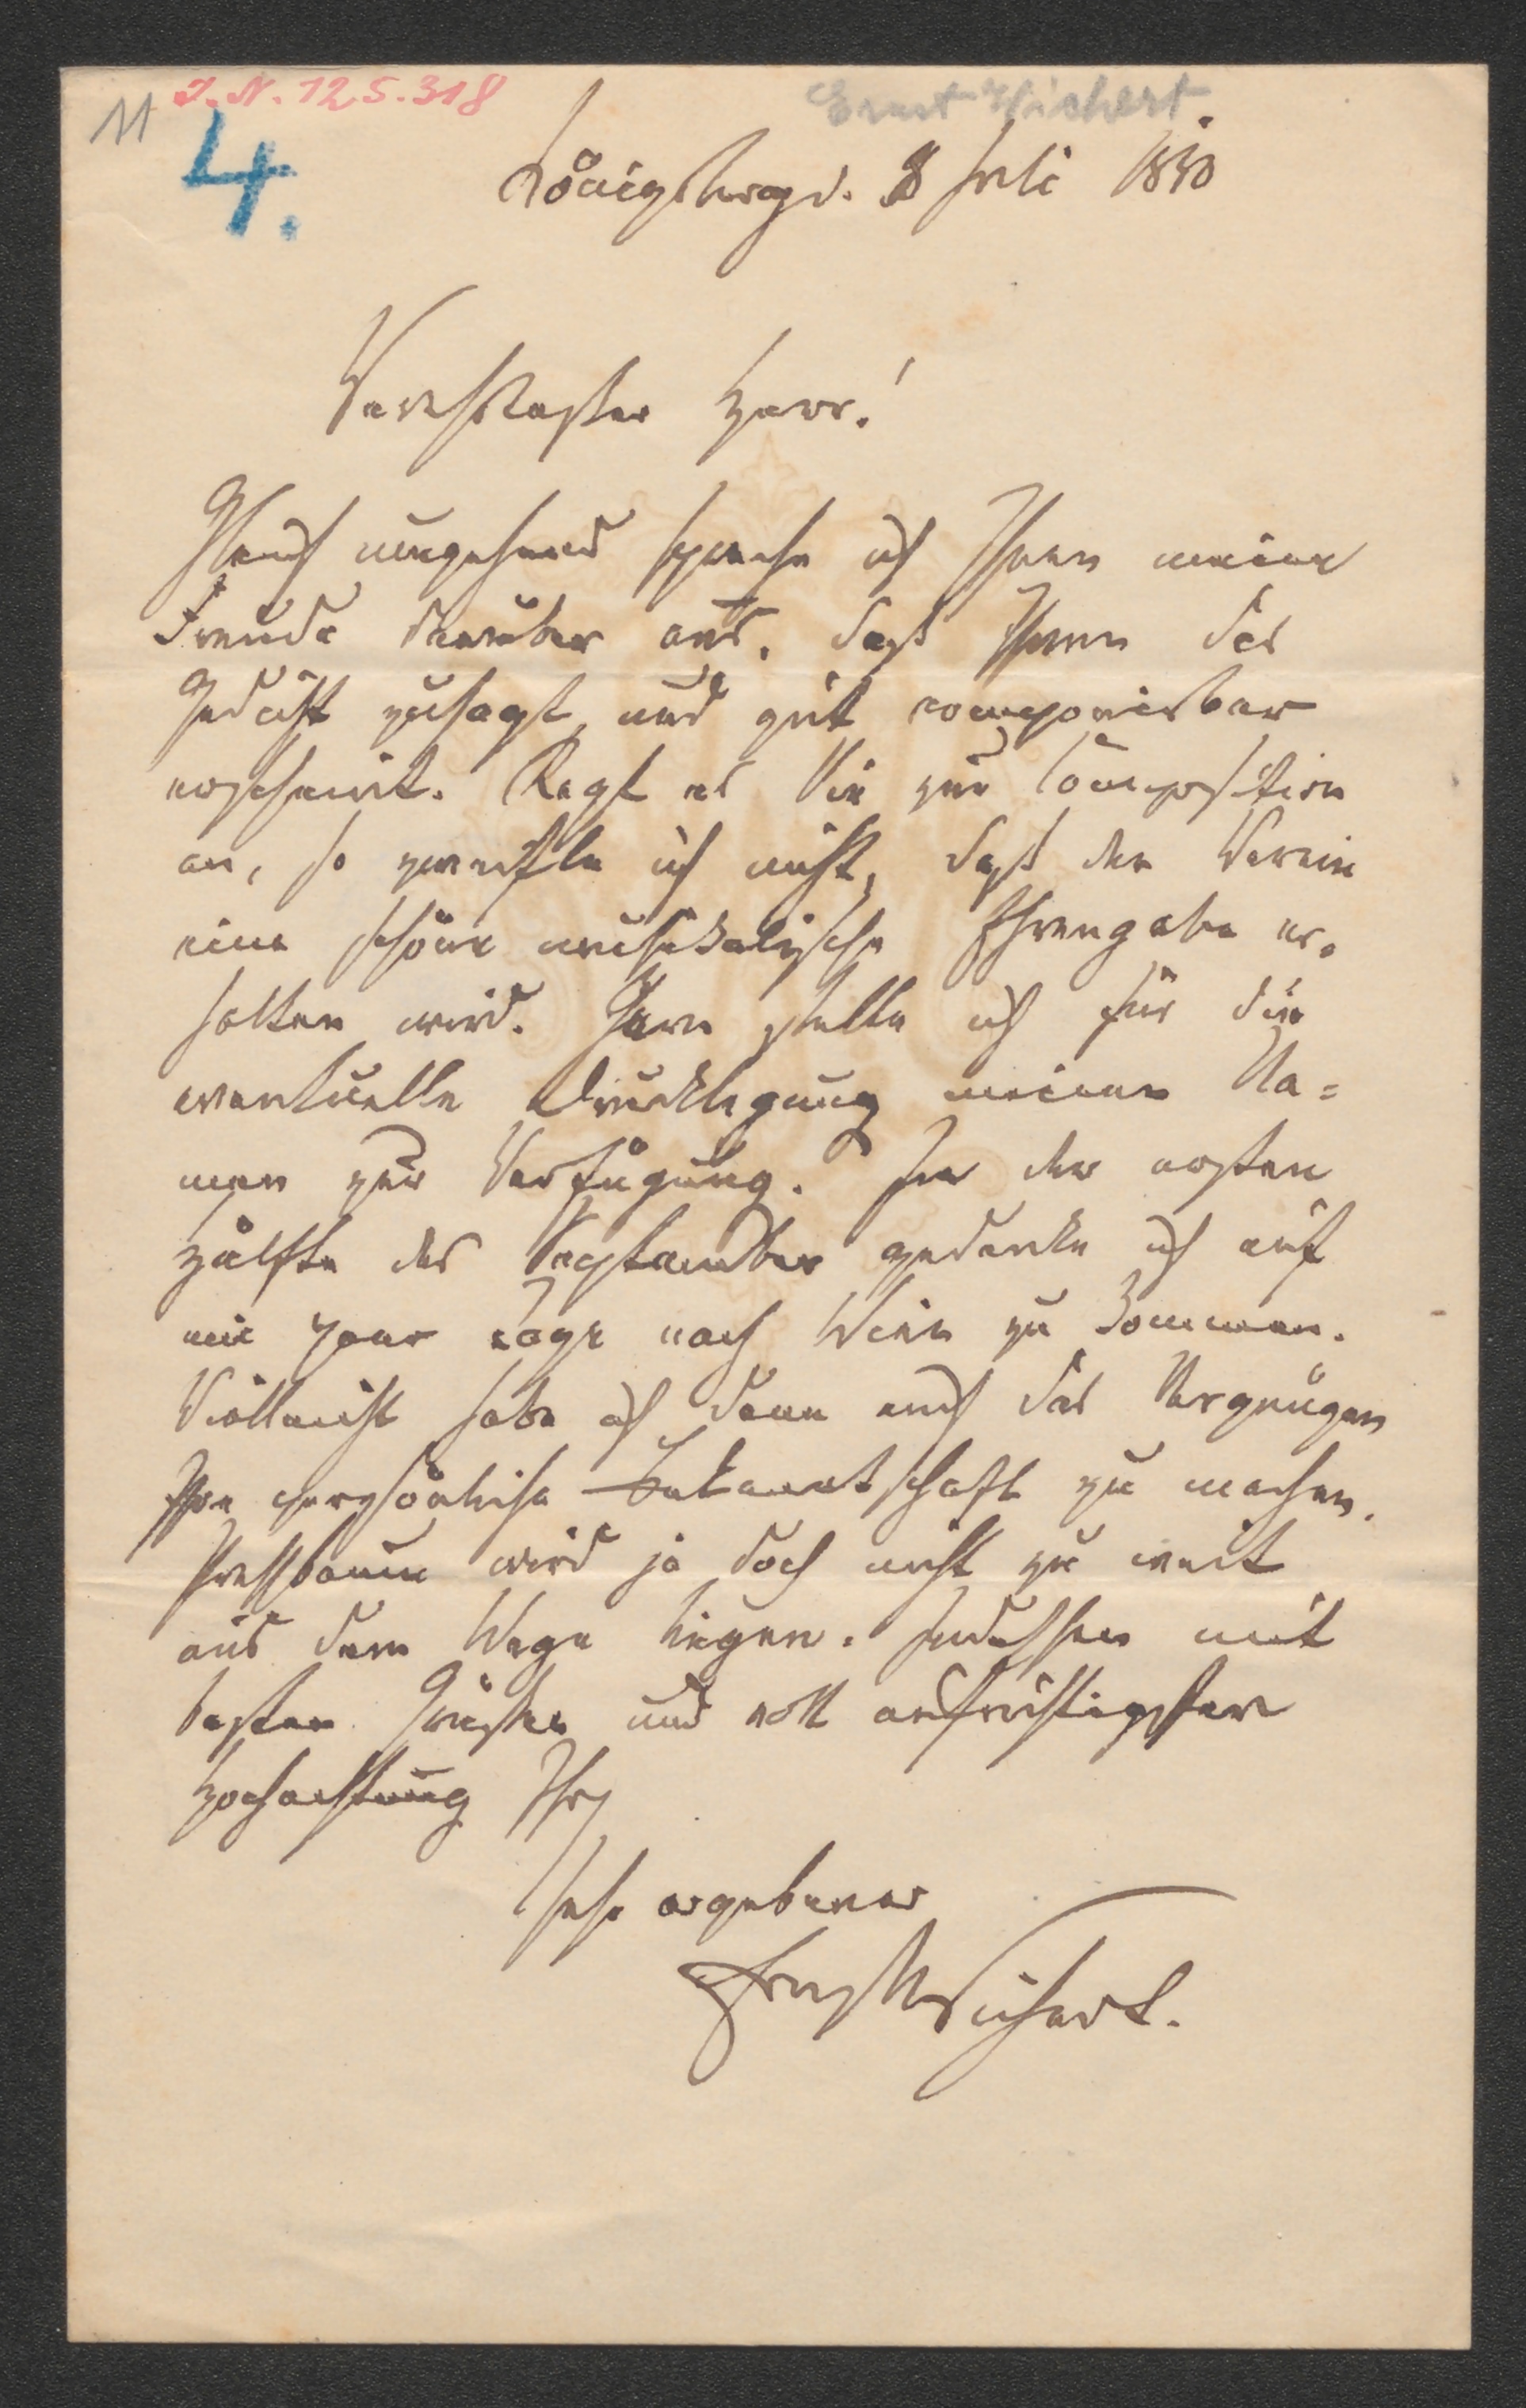 11 I. N. 125.318
Ernst Wichert.
4.
Königsberg d. 8 Juli 1880
Verehrtester Herr!
Gleich umgehend spreche ich Ihnen meine
Freude darüber aus, daß Ihnen das
Gedicht zusagt und gut componierbar
erscheint. Regt es Sie zur Composition
an, so zweifle ich nicht, daß der Verein
eine schöne musikalische Ehrengabe er-
halten wird. Gern stelle ich für die
eventuelle Drucklegung meinen Na=
men zur Verfügung. In der ersten
Hälfte des September gedenke ich auf
ein paar Tage nach Wien zu kommen.
Vielleicht habe ich dann auch das Vergnügen
Ihre persönliche Bekanntschaft zu machen.
Pressbaum wird ja doch nicht zu weit
aus dem Wege liegen. Indessen mit
besten Grüßen und voll aufrichtigster
Hochachtung Ihr
sehr ergebener
Ernst Wichert.